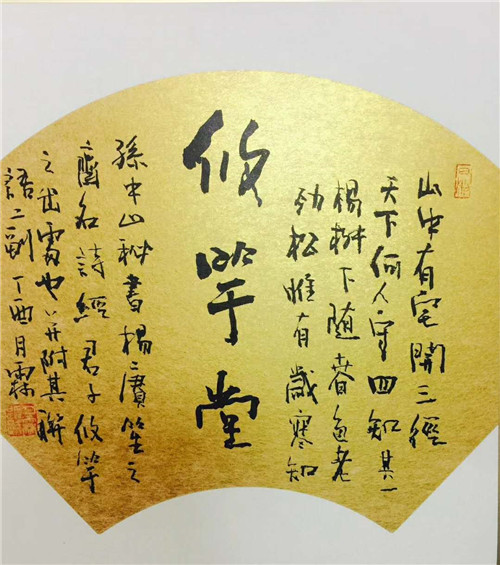 山中有宅開三徑
天下何人守四知其一
楊柳不随春色老
勁松惟有歲寒知
攸芋堂
孫中山秘書楊賡笙之
齋名詩經君子攸芋
之出處也并附其聯
語二副丁酉月霖